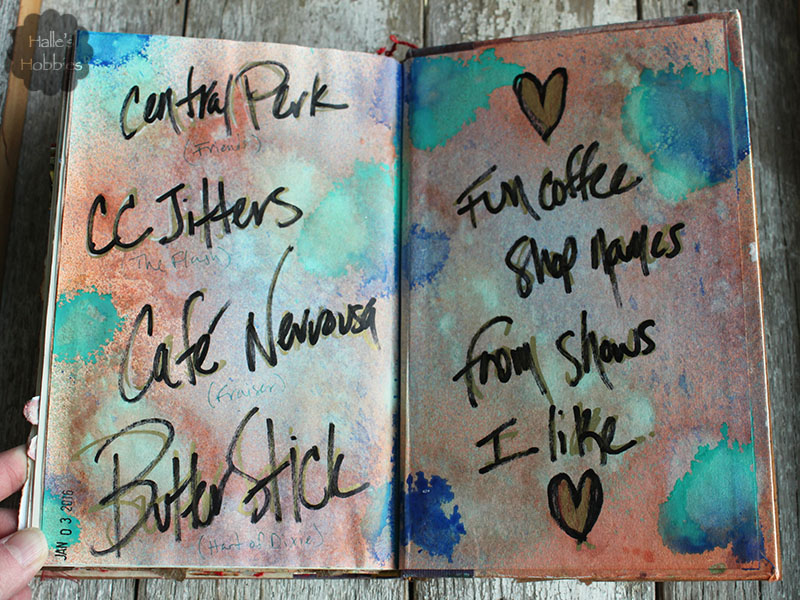 Halle's
Hobbies
Central Perk
(Friends)
CC Jitters
(The Flash)
Café Nervousa
(Fraiser)
Butter Stick
(Hart of Dixie)
JAN 03 2016
Fun coffee
Shop names
From Shows
I like